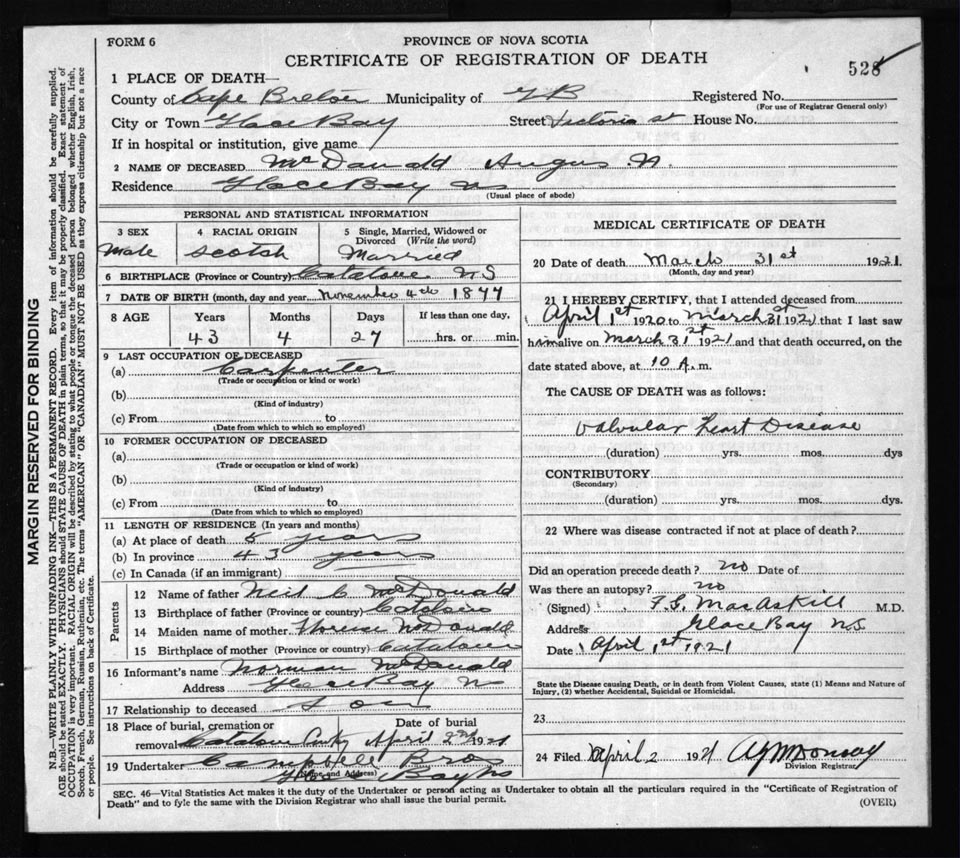 FORM 6
PROVINCE OF NOVA SCOTIA
CERTIFICATE OF REGISTRATION OF DEATH
528
1 PLACE OF DEATH—
County of Cape Breton Municipality of GB Registered No.
(For use of Registrar General only)
City or Town Glace Bay Street Victoria st House No.
If in hospital or institution, give name
2 NAME OF DECEASED McDonald Angus N.
Residence Glace Bay NS
(Usual place of abode)
PERSONAL AND STATISTICAL INFORMATION
3 SEX
Male
4 RACIAL ORIGIN
Scotch
5 Single, Married, Widowed or Divorced (Write the word)
Married
6 BIRTHPLACE (Province or Country) Catalone NS
7 DATE OF BIRTH (month, day and year November 4th 1877
8 AGE Years Months Days If less than one day,
43 4 27 hrs. or min.
9 LAST OCCUPATION OF DECEASED
(a) Carpenter
(Trade or occupation or kind or work)
(b)
(Kind of industry)
(c) From to
(Date from which to which so employed)
10 FORMER OCCUPATION OF DECEASED
(a)
(Trade or occupation or kind of work)
(b)
(Kind of industry)
(c) From to
(Date from which to which so employed)
11 LENGTH OF RESIDENCE (In years and months)
(a) At place of death years
(b) In province 43 years
(c) In Canada (if an immigrant)
Parents
12 Name of father Neil C McDonald
13 Birthplace of father (Province or country) Catalone
14 Maiden name of mother McDonald
15 Birthplace of mother (Province or country) Catalone
16 Informant's name Norman McDonald
Address Glace Bay NS
17 Relationship to deceased Son
18 Place of burial, cremation or removal Catalone Date of burial April 2nd 1921
19 Undertaker Campbell Bros
(Name and Address)
Glace Bay NS
MEDICAL CERTIFICATE OF DEATH
20 Date of death March 31st 1921
(Month, day and year)
21 I HEREBY CERTIFY, that I attended deceased from
April 1st 1920 to March 31st 1921 that I last saw
him alive on March 31st 1921 and that death occurred, on the
date stated above, at 10 A. m.
The CAUSE OF DEATH was as follows:
Valvular Heart Disease
(duration) yrs. mos. dys
CONTRIBUTORY
(Secondary)
(duration) yrs. mos. dys.
22 Where was disease contracted if not at place of death?
Did an operation precede death? no Date of
Was there an autopsy? no
(Signed) MacAskill M.D.
Address Glace Bay NS
Date April 1st 1921
State the Disease causing Death, or in death from Violent Causes, state (1) Means and Nature of
Injury, (2) whether Accidental, Suicidal or Homicidal.
23
24 Filed April 2 1921
Division Registrar
SEC. 46—Vital Statistics Act makes it the duty of the Undertaker or person acting as Undertaker to obtain all the particulars required in the "Certificate of Registration of
Death" and to fyle the same with the Division Registrar who shall issue the burial permit.
(OVER)
MARGIN RESERVED FOR BINDING
N.B.—WRITE PLAINLY WITH UNFADING INK—THIS IS A PERMANENT RECORD. Every item of information should be carefully supplied.
AGE should be stated EXACTLY. PHYSICIANS should STATE CAUSE OF DEATH in plain terms, so that it may be properly classified. Exact statement of
OCCUPATION is very important. RACIAL ORIGIN will be described by stating to what people or tongue the deceased person belonged whether English, Irish,
Scotch, French, German, Russian, Ruthenian, etc. The terms "AMERICAN" OR "CANADIAN" MUST NOT BE USED as they express citizenship but not a race
or people. See instructions on back of Certificate.